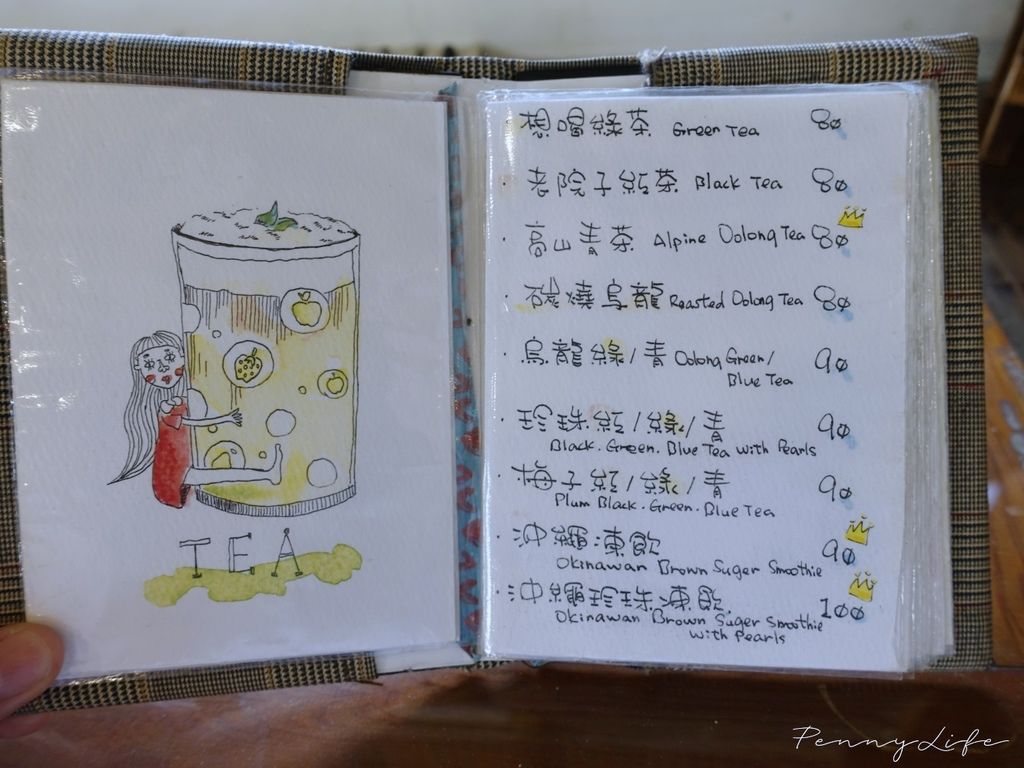 TEA
想喝綠茶 Green Tea 80
· 老院子紅茶 Black Tea 80
· 高山青茶 Alpine Oolong Tea 80
· 碳燒烏龍 Roasted Oolong Tea 80
· 烏龍綠/青 Oolong Green/ 90
Blue Tea
· 珍珠紅/綠/青 90
Black. Green. Blue Tea with Pearls
· 梅子紅/綠/青 90
Plum Black. Green. Blue Tea
· 沖繩凍飲 90
Okinawan Brown Suger Smoothie
· 沖繩珍珠凍飲 100
Okinawan Brown Suger Smoothie
with Pearls
PennyLife